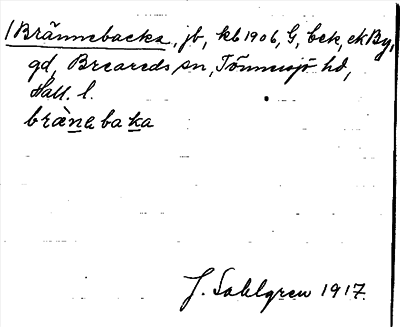 1 Brännebacka, jb, kb 1906, G, bek, ek By,
gd, Breareds sn, Tönnersjö hd,
Hall. l.
brä̀nebaka
J. Sahlgren 1917.